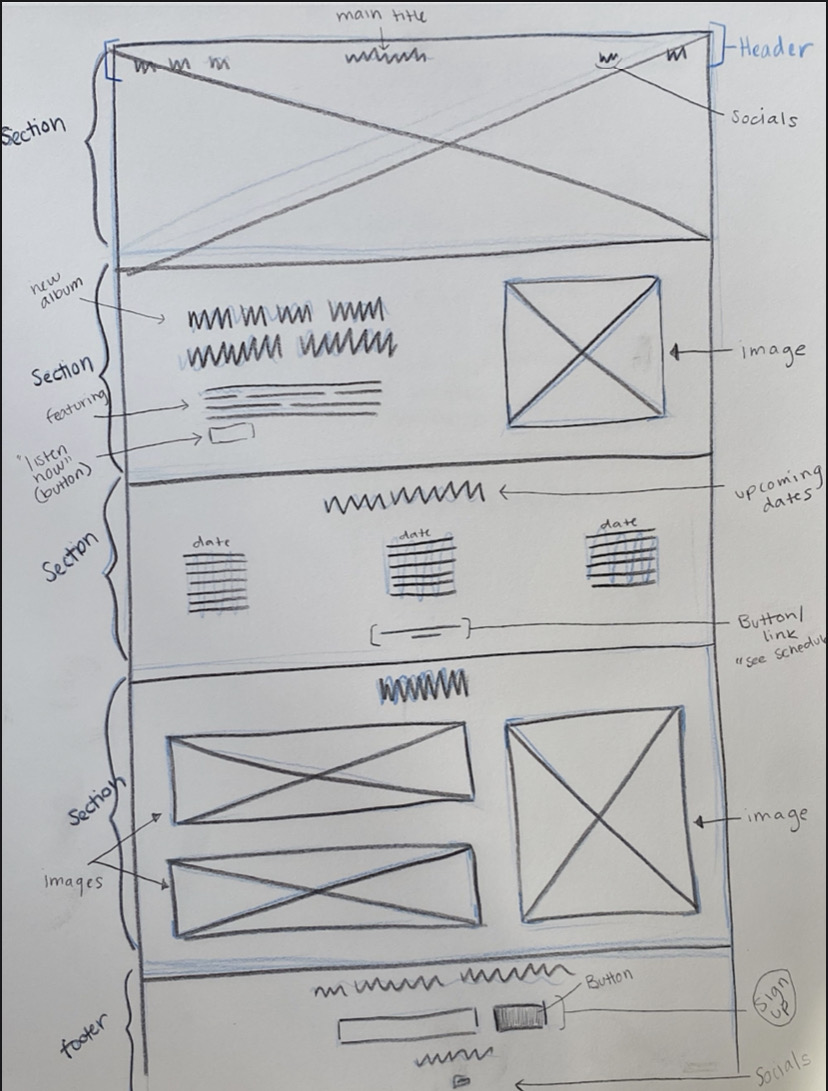 main title
Header
Socials
Section
new
album
Section
image
featuring
"listen
now"
(button)
upcoming
dates
Section
date
date
date
Button/
link
"see schedul
Section
image
images
Button
Sign
up
footer
Socials